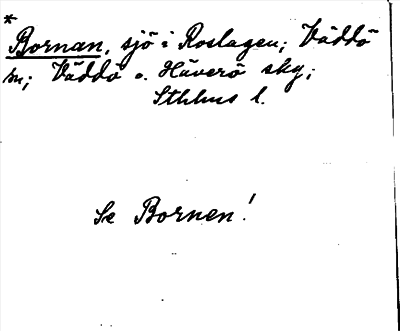 *
Bornan, sjö i Roslagen; Väddö
sn; Väddö o. Häverö sky;
Sthlms l.
Se Bornen!